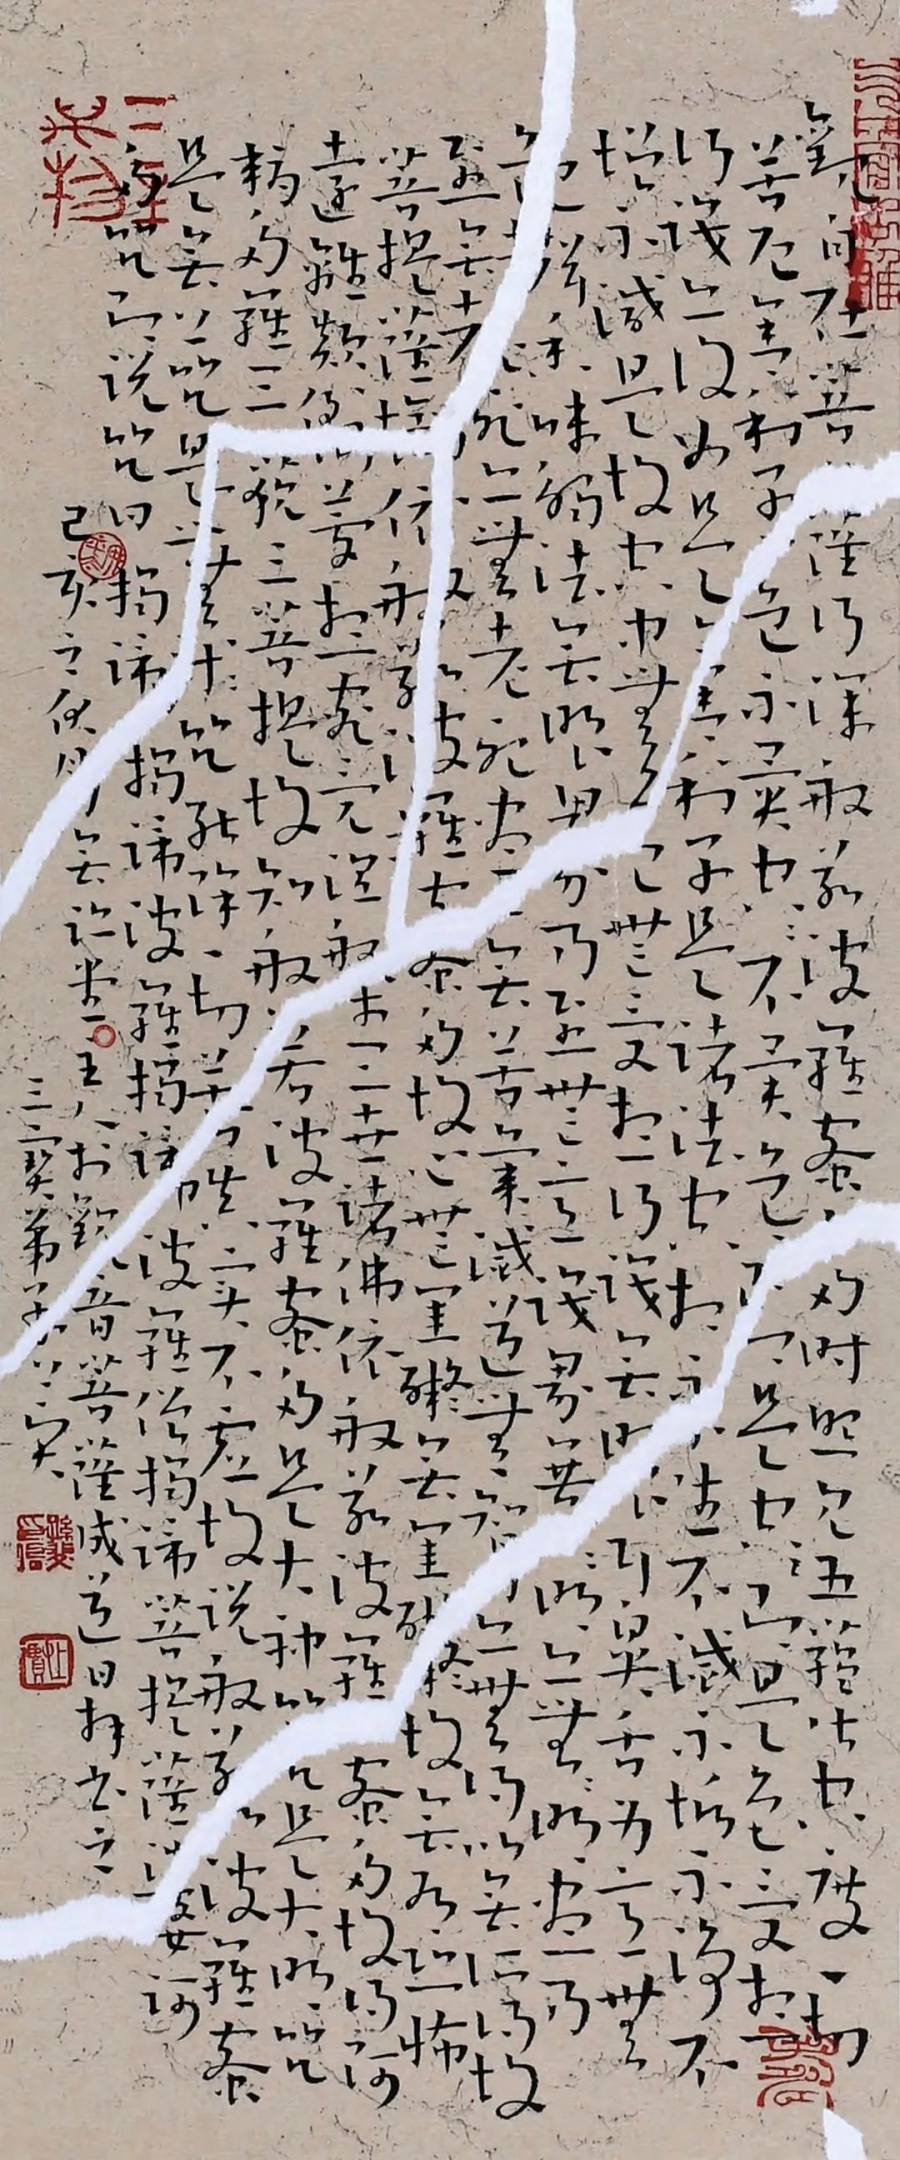 觀自在菩薩行深般若波羅蜜多時照見五蘊皆空度一切
苦厄舍利子色不異空空不異色色即是空空即是色受想
行識亦復如是舍利子是諸法空相不生不滅不垢不淨不
增不減是故空中無色無受想行識無眼耳鼻舌身意無
色聲香味觸法無眼界乃至無意識界無無明亦無無明盡乃
至無老死亦無老死盡無苦集滅道無智亦無得以無所得故
菩提薩埵依般若波羅蜜多故心無罣礙無罣礙故無有恐怖
遠離顛倒夢想究竟涅槃三世諸佛依般若波羅蜜多故得阿
耨多羅三藐三菩提故知般若波羅蜜多是大神咒是大明咒
是無上咒是無等等咒能除一切苦真實不虛故說般若波羅蜜
多咒即說咒曰揭諦揭諦波羅揭諦波羅僧揭諦菩提薩婆訶
己亥之伏月堂主人於觀音菩薩成道日拜書之
三寶弟子